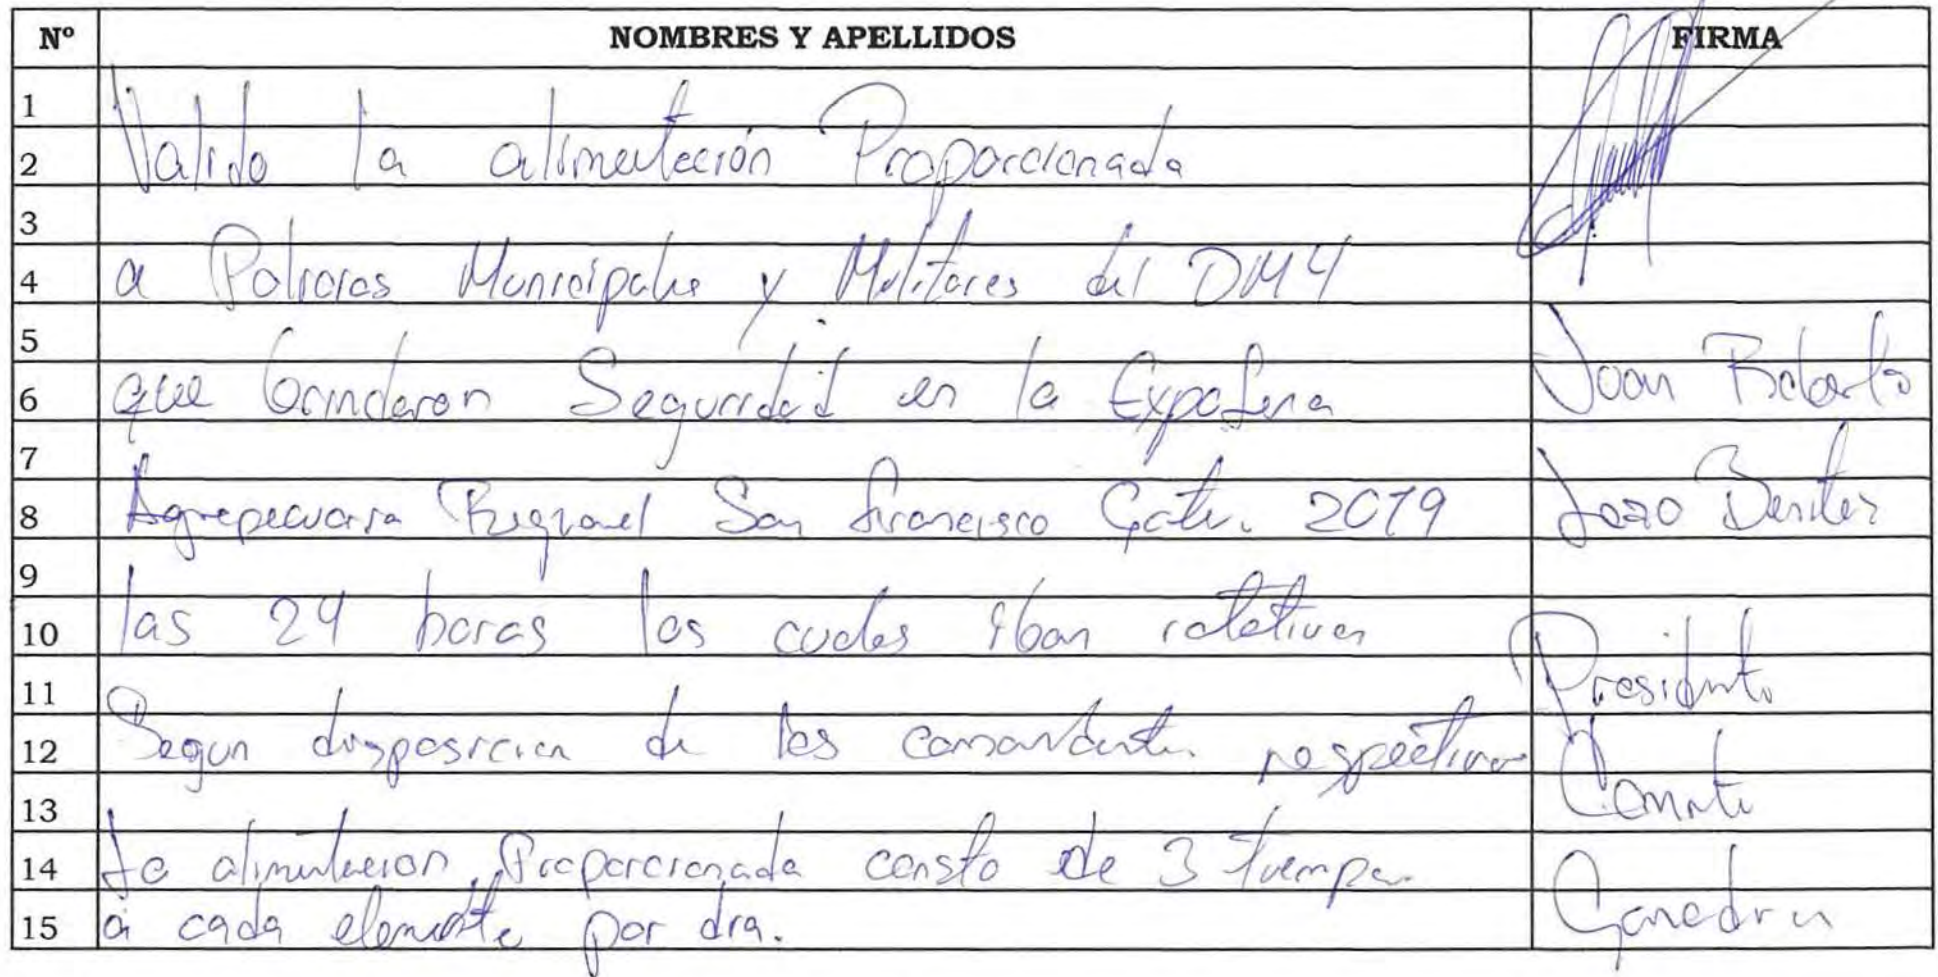 Nº NOMBRES Y APELLIDOS FIRMA
1
2 Valido la alimentación Proporcionada
3
4 a Policias Municipales y Militares del DM4
5
6 que brindaron Seguridad en la Expoferia Joan Roberto
7
8 Agropecuaria Regional San francisco Gotera 2019 Lazo Benitez
9
10 las 24 horas los cuales iban rotativos
11 Presidente
12 Segun disposicion de los comandantes respectivos
13 Comite
14 La alimentacion Proporcionada consto de 3 tiempos
15 a cada elemento por dia. Ganadero